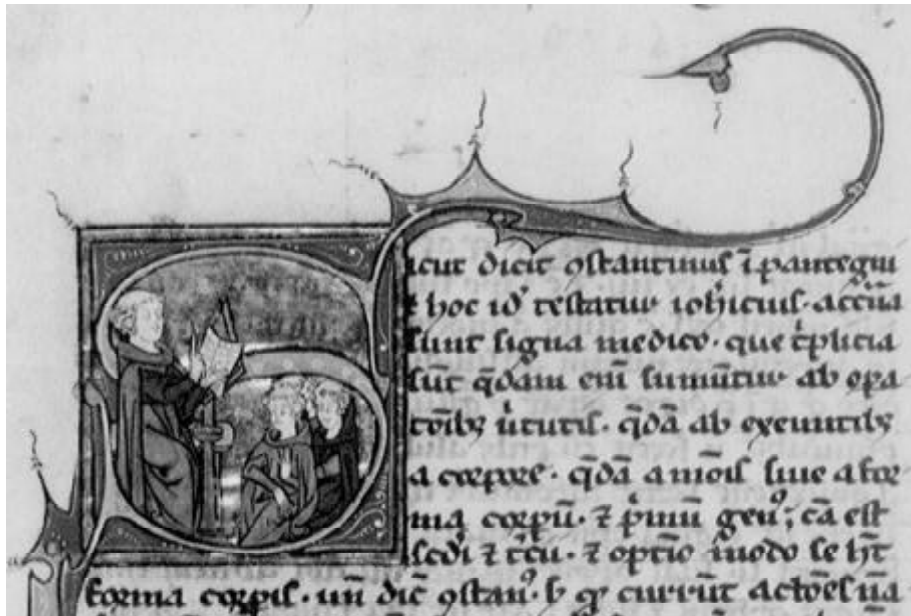 icut dicit ꝯstantinus ĩ pantegni
⁊ hoc id᷒ testatur ioħicius. accñta
sunt signa medico. que tͥplicia
sũt q̃dam eni᷒ sumũtur ab opa
tõibꝫ uͥtutis. q̃dã ab exeuntibꝫ
a corpore. q̃dã a mõis siue a for
ma corpũ. ⁊ pͥmũ genꝰ; cã est
scd̃i ⁊ tc̃ii. ⁊ modo se hñt
forma corpis. uñ dic̃ ꝯstanꝰ. currũt